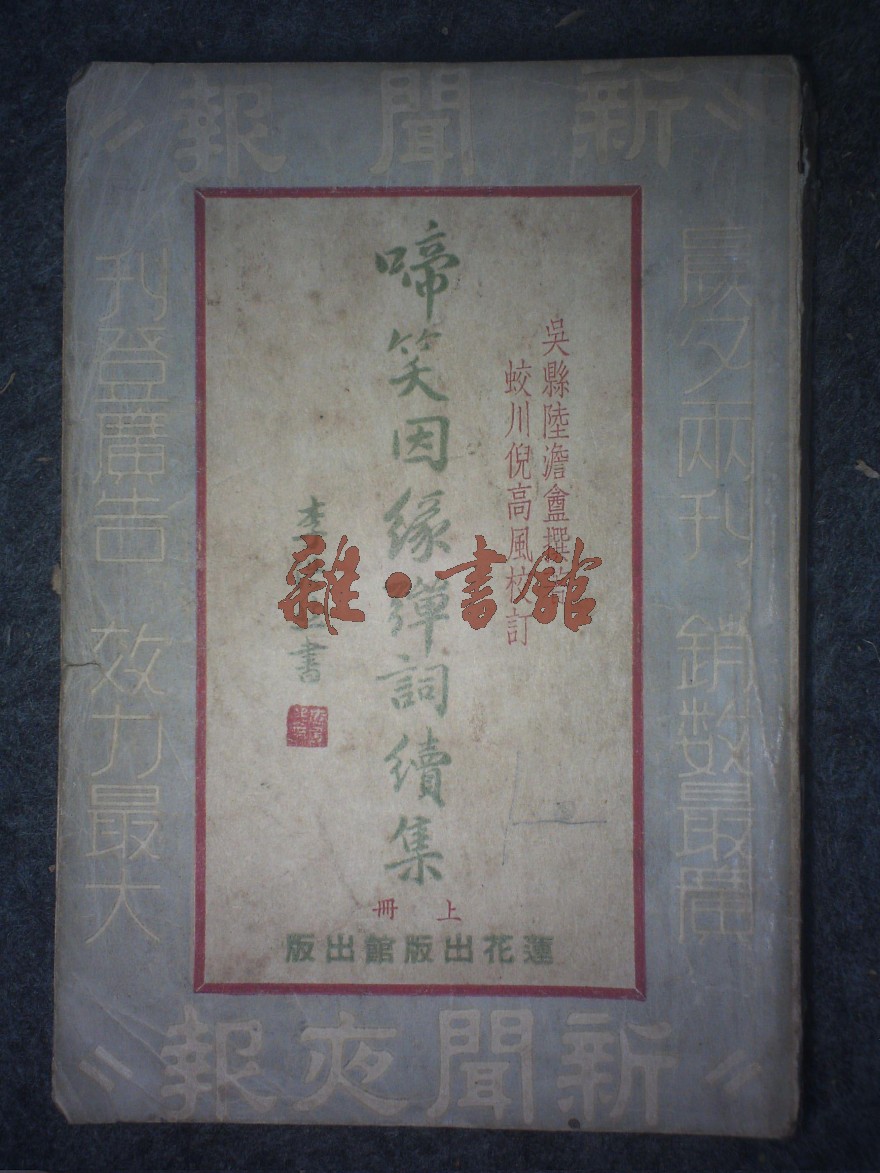 新聞報
晨夕兩刊 銷數最廣
刊登廣告 效力最大
吳縣陸澹盦撰
蛟川倪高風校訂
啼笑因緣彈詞續集
李
書
上冊
蓮花出版館出版
新聞夜報
雜·書館